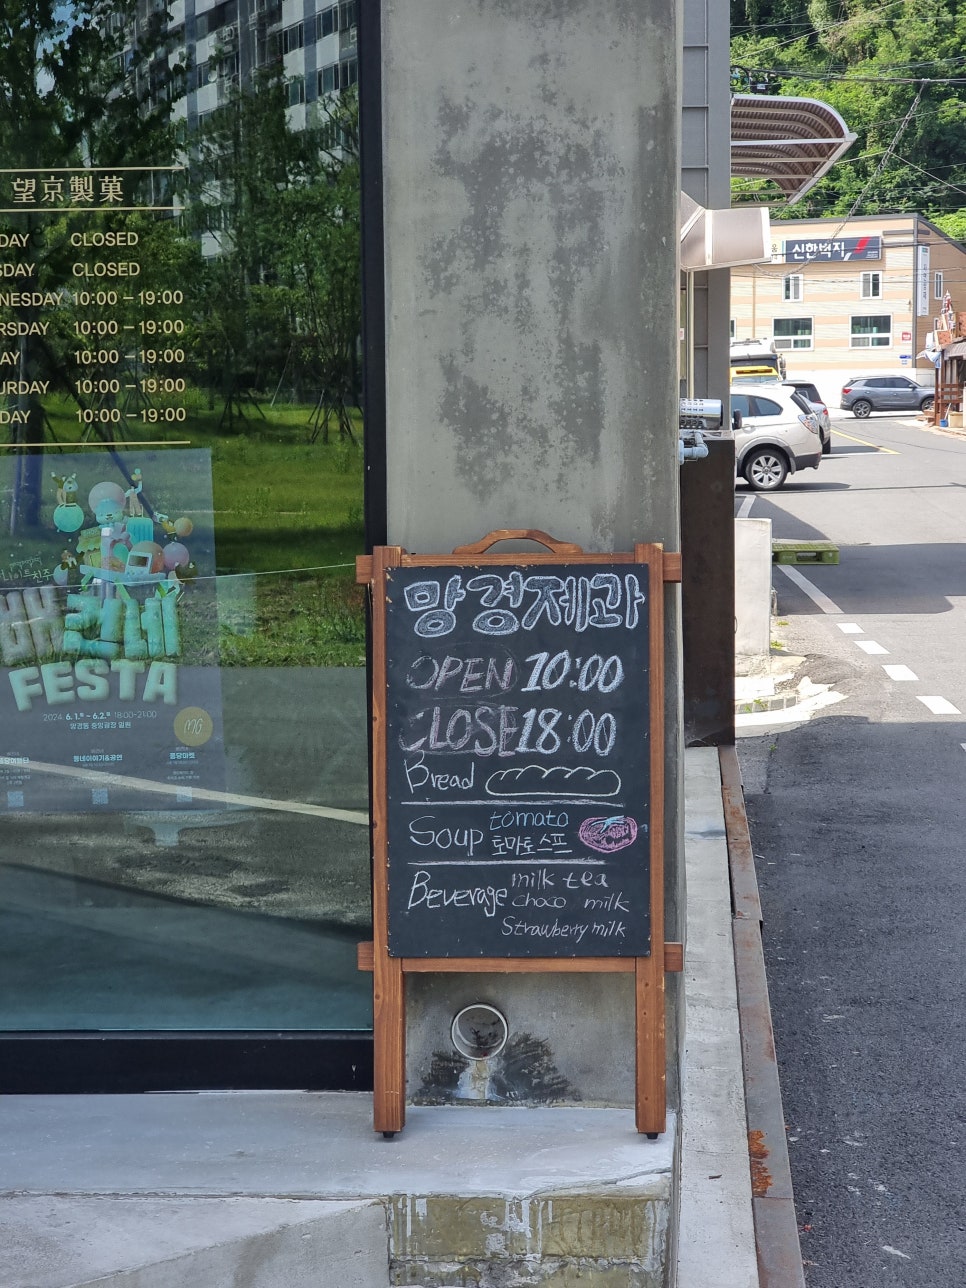 望京製菓
DAY CLOSED
SDAY CLOSED
NESDAY 10:00 – 19:00
RSDAY 10:00 – 19:00
AY 10:00 – 19:00
URDAY 10:00 – 19:00
DAY 10:00 – 19:00
FESTA
2024 6.1.토 - 6.2.일 18:00-21:00
MG
망경제과
OPEN 10:00
CLOSE 18:00
Bread
Soup tomato
토마토스프
Beverage milk tea
choco milk
Strawberry milk
신한벽지